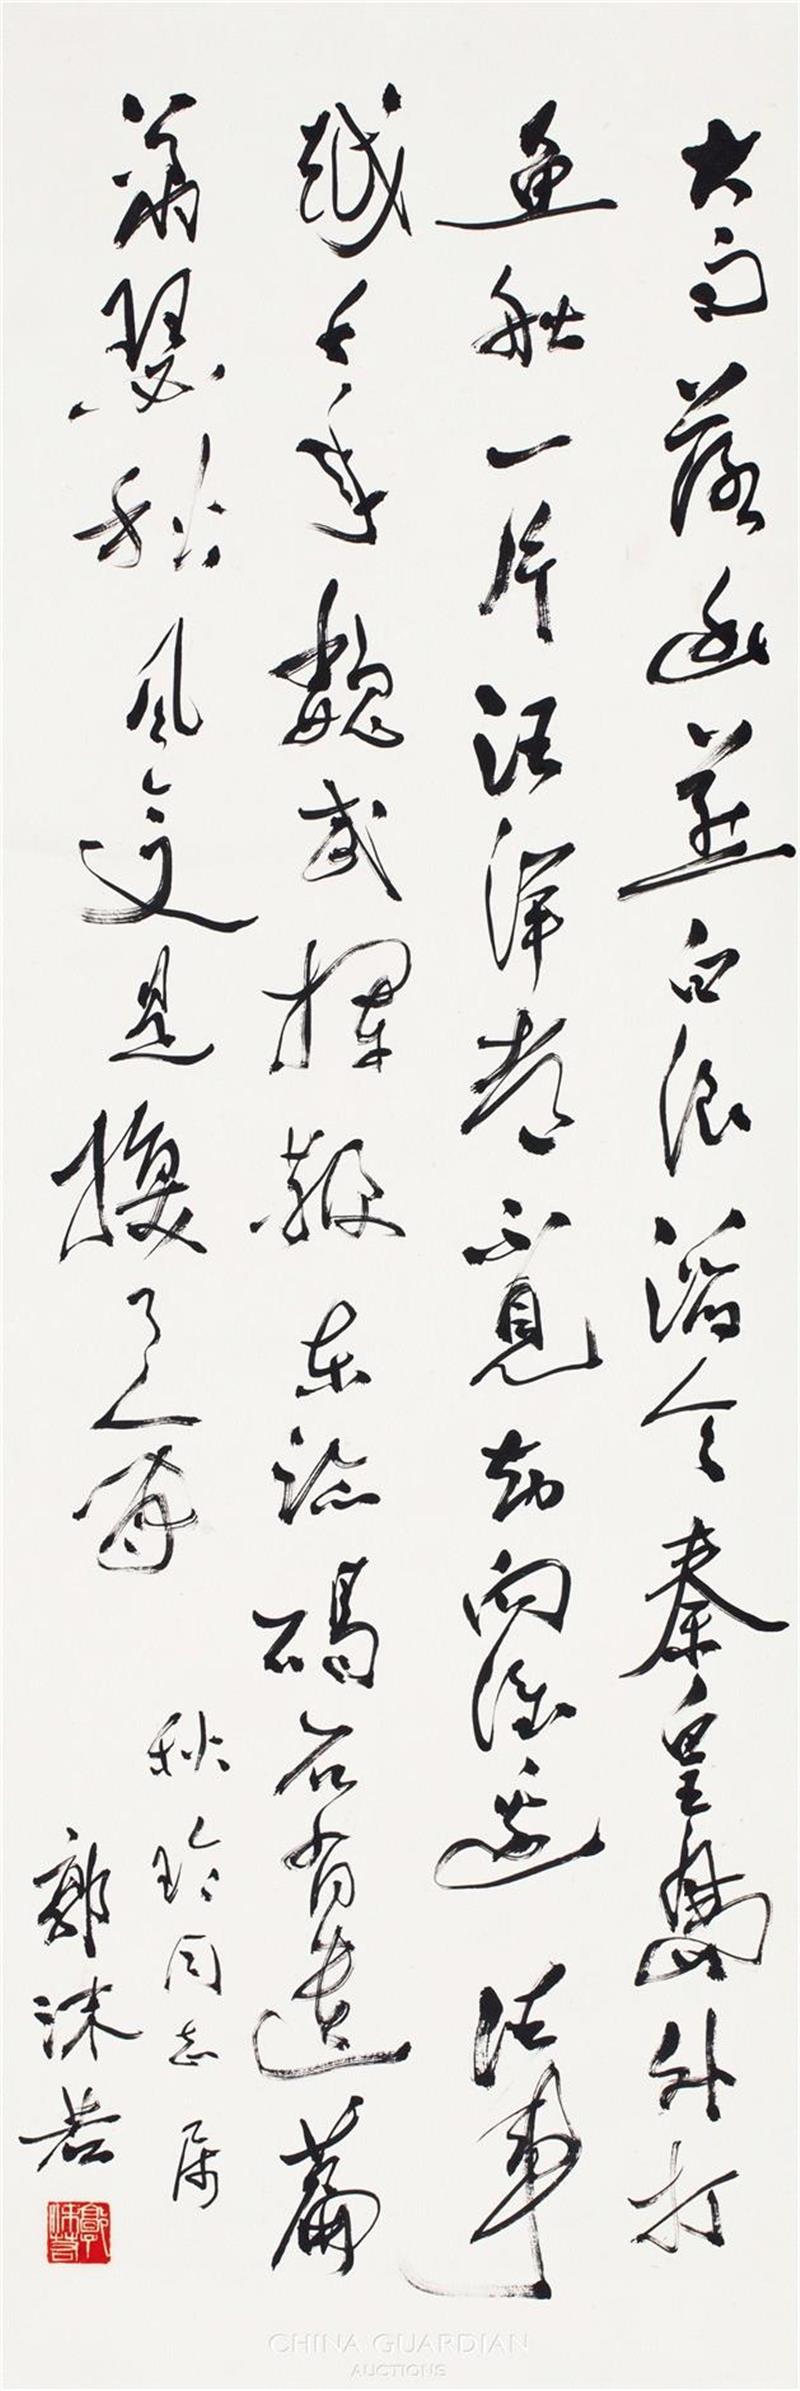 大雨落幽燕白浪滔天秦皇島外打
魚船一片汪洋都不見知向誰邊 往事
越千年魏武揮鞭東臨碣石有遺篇
蕭瑟秋風今又是換了人間
秋玲同志屬
郭沫若
郭沫若
CHINA GUARDIAN
AUCTIONS